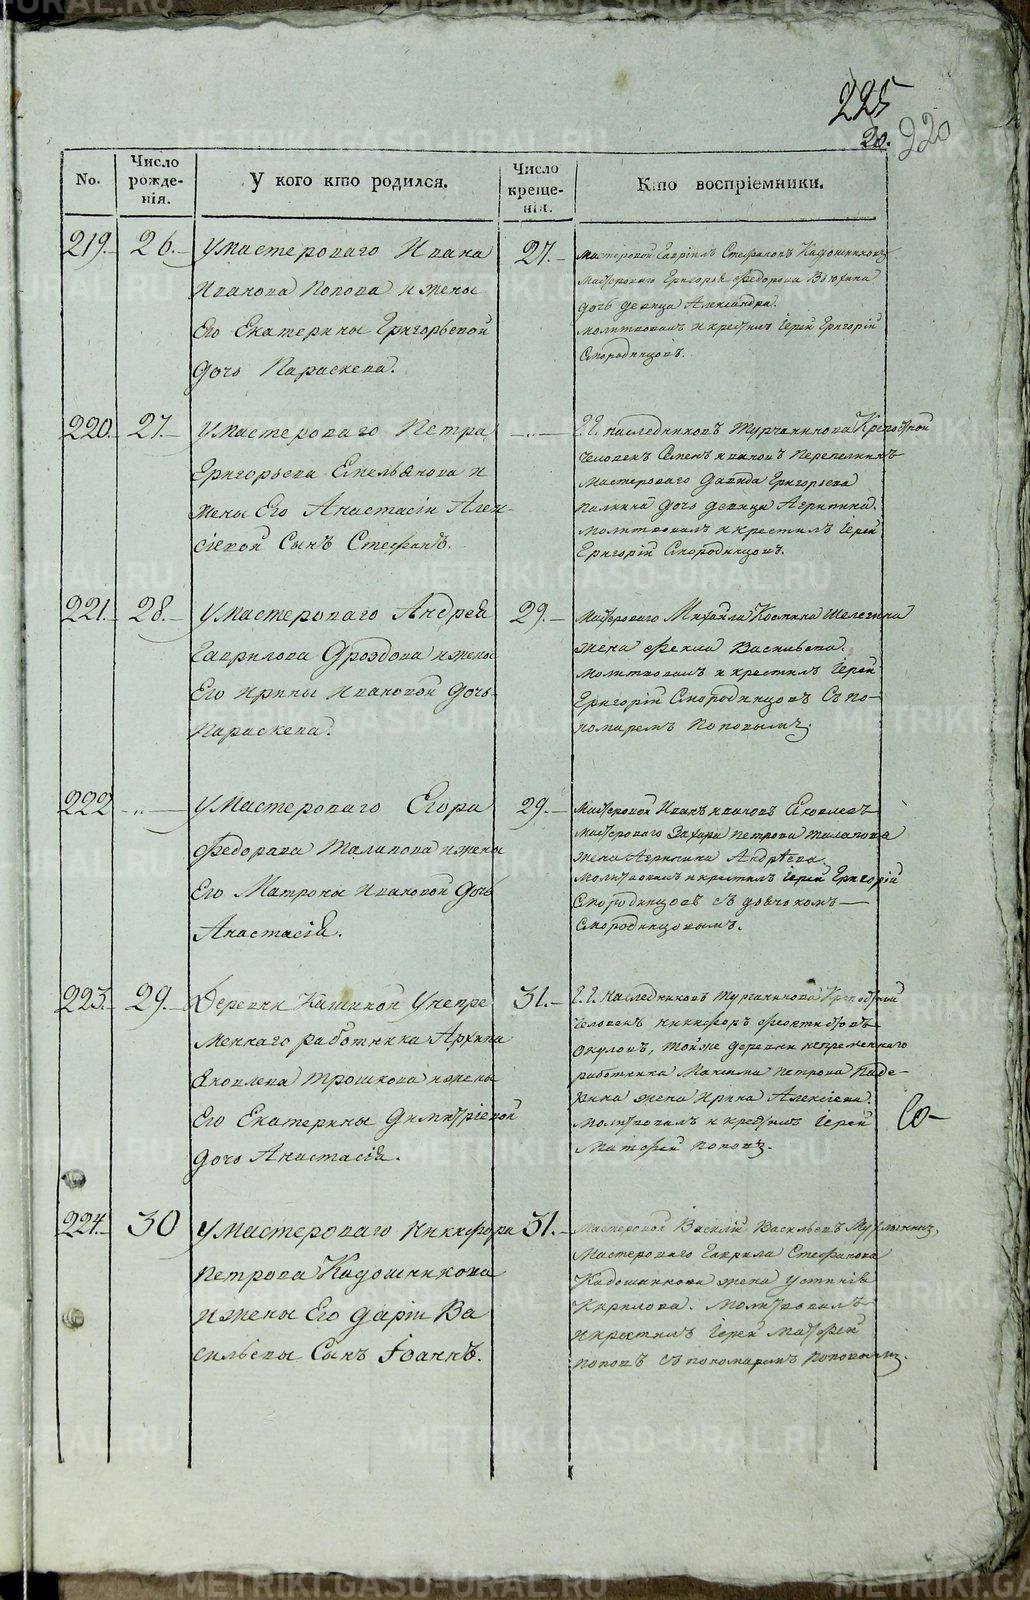 225
20.
220
No.
Число рожде-нія.
У кого кто родился.
Число креще-нія.
Кто воспріемники.
219. 26.
У Мастероваго Ивана
Иванова Попова и жены
Его Екатерины Григорьевой
дочь Параскева.
27.
Мастеровой Гавріилъ Стефановъ Кадошниковъ
Мастероваго Григорья Федорова
дочь девица Александра.
Молитвовалъ и крестилъ Іерей Григорій
Смородинцовъ.
220. 27.
У Мастероваго Петра
Григорьева Емельянова и
жены Его Анастасіи Алек-
сіевой Сынъ Стефанъ.
— „ —
Г.Г. наследниковъ Турчанинова Крепостной
человекъ Семенъ Ивановъ Перепелкинъ
Мастероваго Давида Григорьева
Палкина дочь девица Агрипина.
Молитвовалъ и крестилъ Іерей
Григорій Смородинцовъ.
221. 28.
У Мастероваго Андрея
Гаврилова Дроздова и жены
Его Ирины Ивановой дочь
Параскева.
29.
Мастероваго Михайла Козмина Шелегина
жена Фекла Васильева.
Молитвовалъ и крестилъ Іерей
Григорій Смородинцовъ Съ по-
номаремъ Поповымъ.
222 — „ —
У Мастероваго Егора
Федорава Талапова и жены
Его Матроны Ивановой дочь
Анастасія.
29.
Мастеровой Иванъ Ивановъ Яковлевъ
Мастероваго Захара Петрова Талапова
жена Агрипина Андрѣева
Молитвовалъ и крестилъ Іерей Григорій
Смородинцовъ съ дьячкомъ
Смородинцовымъ.
223. 29.
Деревни Кашиной У непре
меннаго работника Архипа
Яковлева Трошкова и жены
Его Екатерины Димитріевой
дочь Анастасія.
31.
Г.Г. Наследниковъ Турчанинова Крепостной
человекъ Никифоръ Феоктистовъ
Окуловъ, тойже деревни непременнаго
работника Максима Петрова
жена Ирина Алексіева.
Молитвовалъ и крестилъ Іерей
Матфей Поповъ.
224. 30
У Мастероваго Никифора
Петрова Кадошникова
и жены Его Даріи Ва
сильевы Сынъ Іоаннъ.
31.
Мастеровой Василій Васильевъ
Мастероваго Гаврила Стефанова
Кадошникова жена Устинія
Кирилова. Молитвовалъ
и крестилъ Іерей Матфей
Поповъ съ пономаремъ Поповымъ.
Со-
METRIKI.GASO-URAL.RU